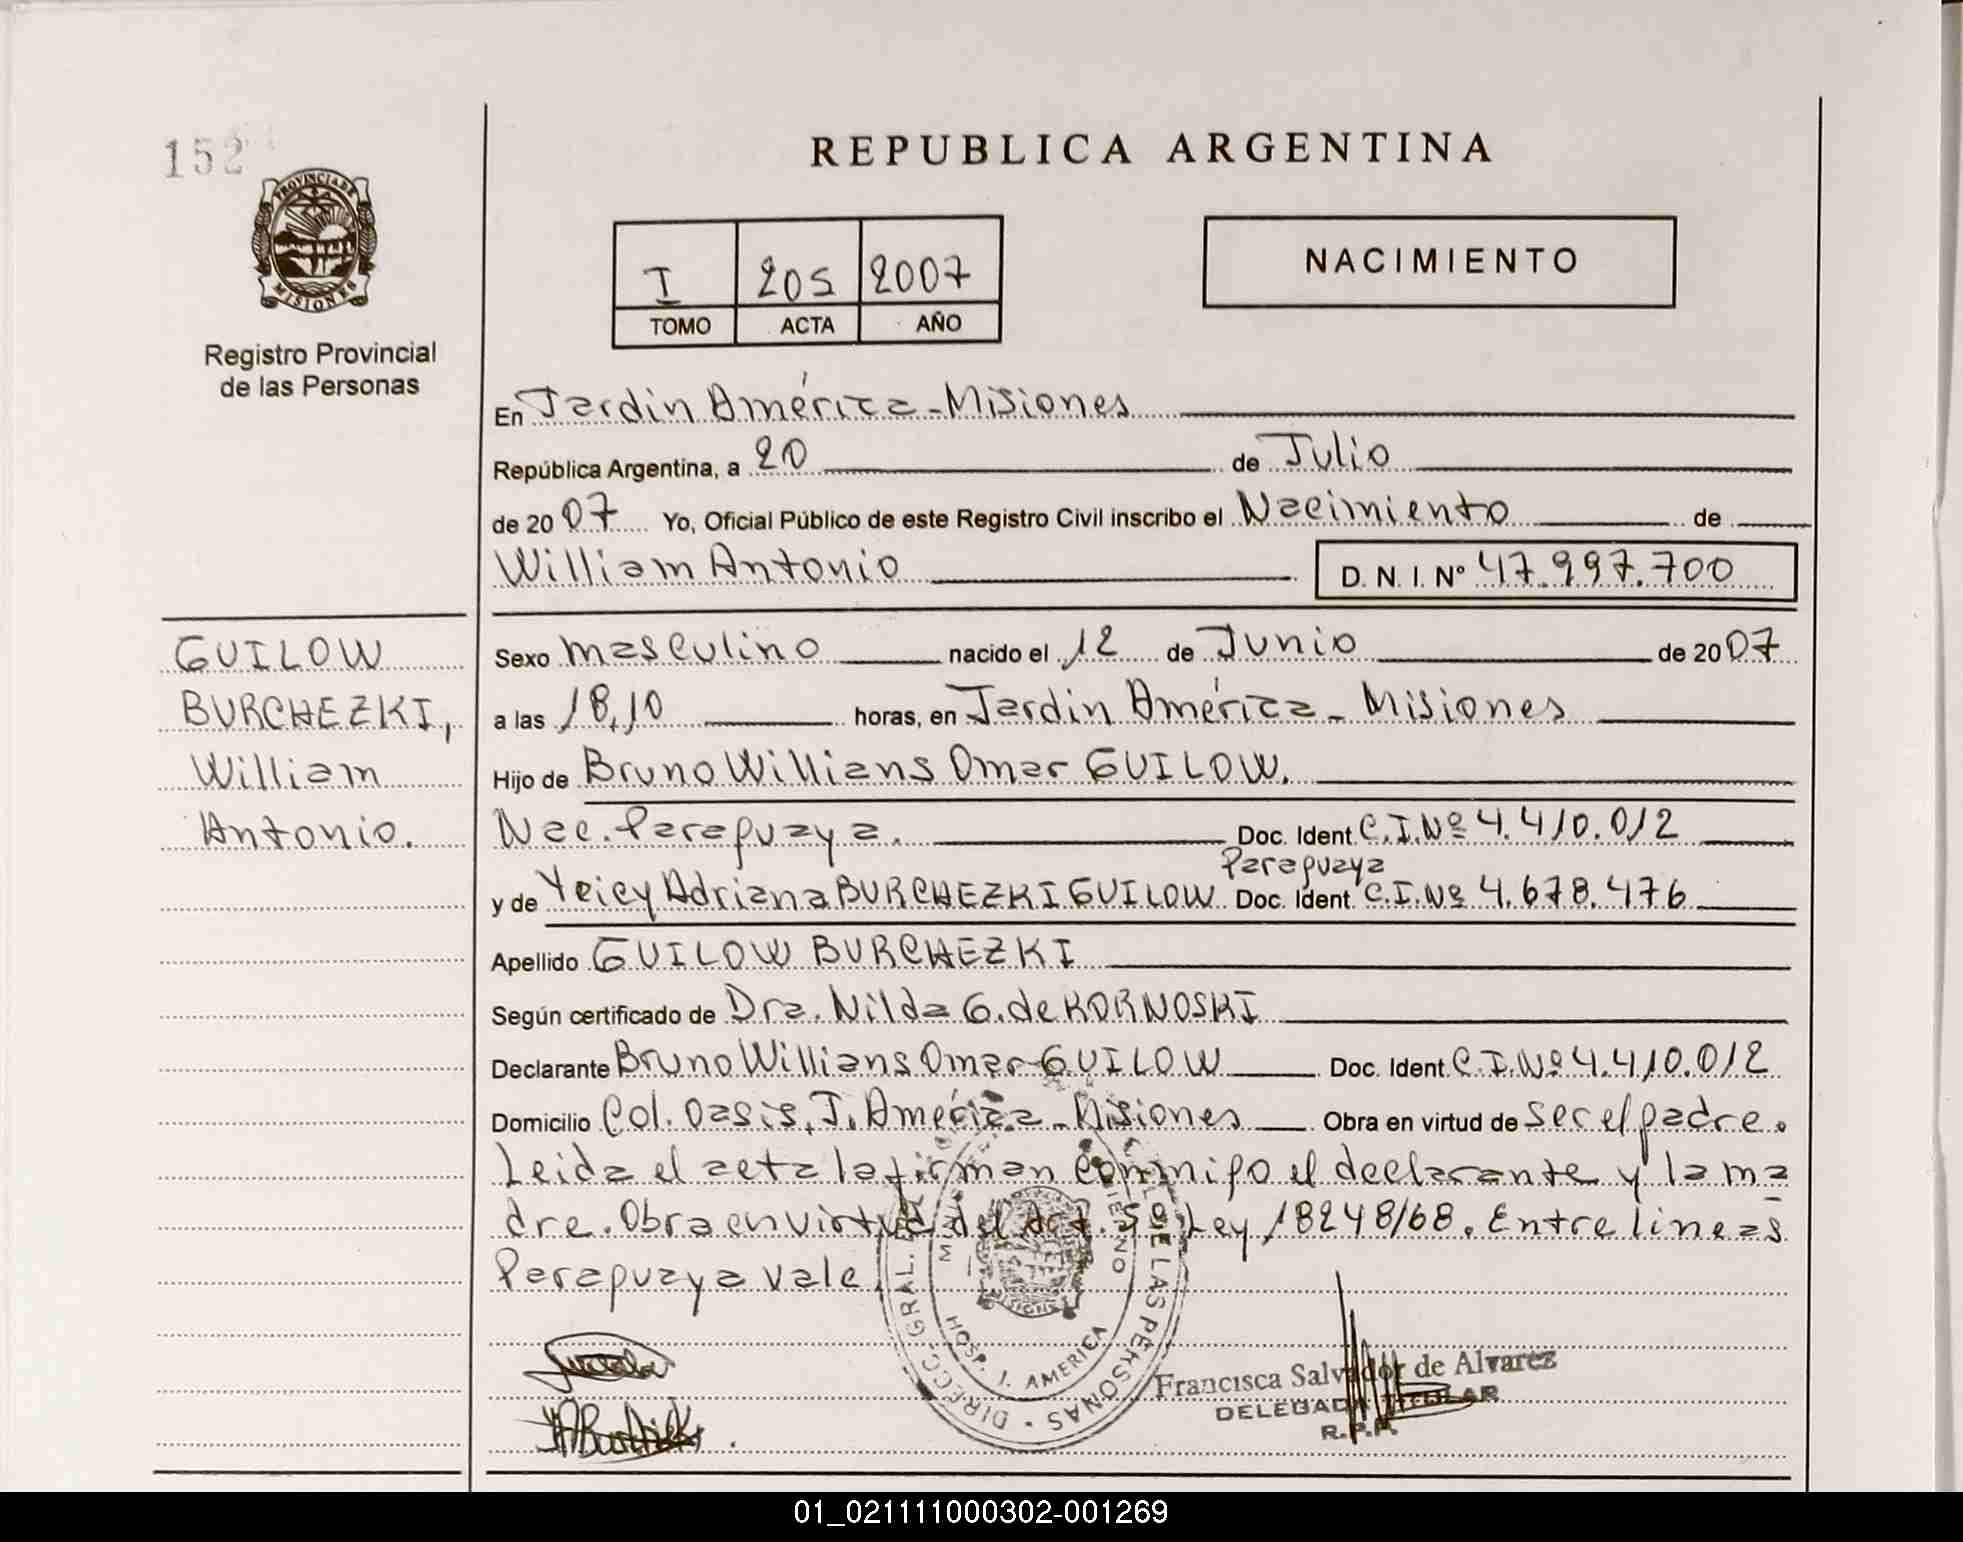 152
REPUBLICA ARGENTINA
PROVINCIA DE
MISIONES
Registro Provincial
de las Personas
I 205 2007
TOMO ACTA AÑO
NACIMIENTO
En Jardin América - Misiones
República Argentina, a 20 de Julio
de 2007 Yo, Oficial Público de este Registro Civil inscribo el Nacimiento de
William Antonio D. N. I. Nº 47.997.700
GUILOW
BURCHEZKI,
William
Antonio.
Sexo masculino nacido el 12 de Junio de 2007
a las 18,10 horas, en Jardin América - Misiones
Hijo de Bruno Willians Omar GUILOW.
Nac. Paraguaya. Doc. Ident. C.I.Nº 4.410.012
Paraguaya
y de Yeicy Adriana BURCHEZKI GUILOW Doc. Ident. C.I.Nº 4.678.476
Apellido GUILOW BURCHEZKI
Según certificado de Dra. Nilda G. de KORNOSKI
Declarante Bruno Willians Omar GUILOW Doc. Ident. C.I.Nº 4.410.012
Domicilio Col. Oasis, J. América - Misiones Obra en virtud de ser el padre.
Leida el acta la firman conmigo el declarante y la ma
dre. Obra en virtud del Art. 5º Ley 18248/68. Entre lineas
Paraguaya vale.
HOSP. J. AMERICA
DE LAS PERSONAS
Francisca Salvador de Alvarez
DELEGADA TITULAR
R.P.P.
01_021111000302-001269